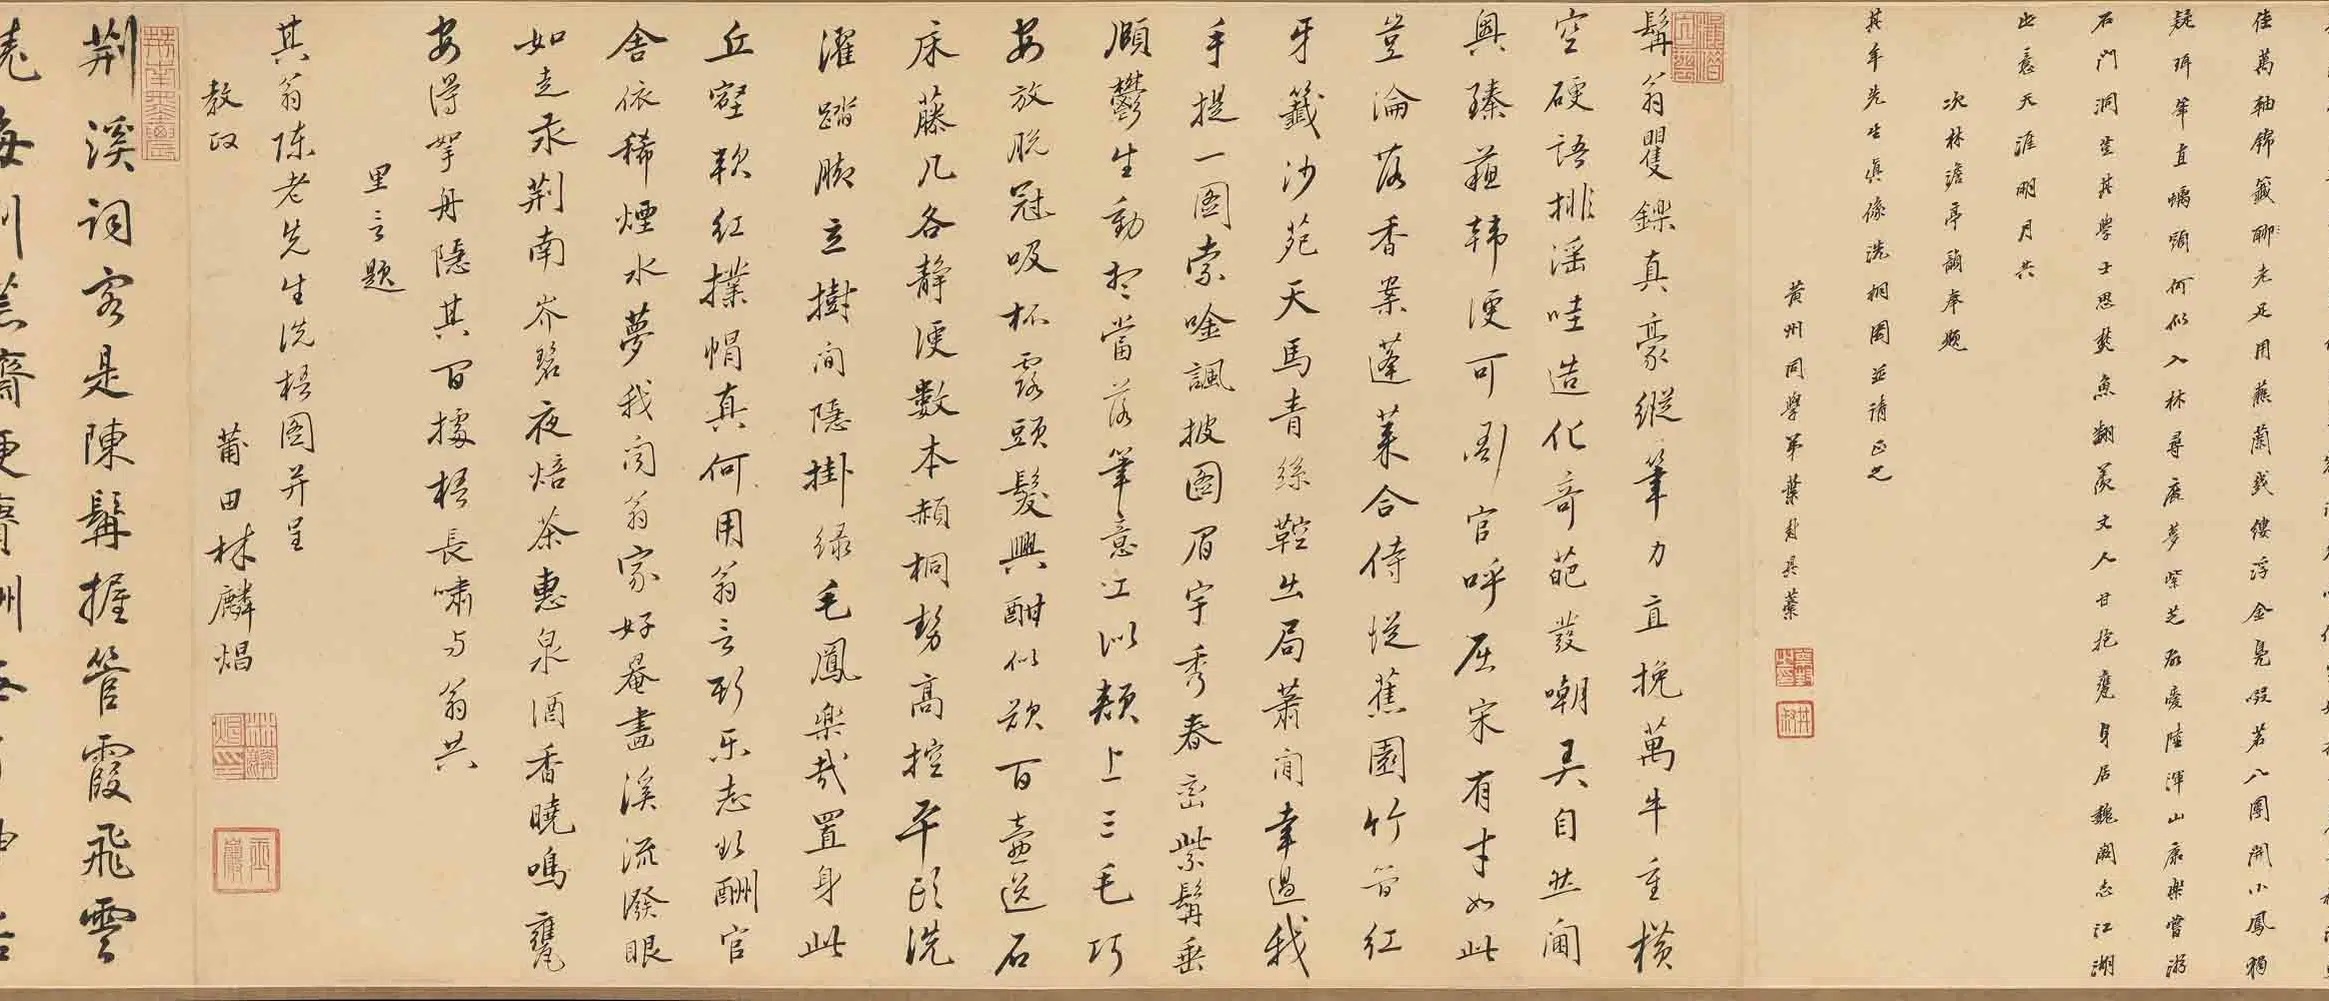 佳萬軸錦籤聊老足用蕉蘭戲縷浮金鳧啜若八團開小鳳獨
疑珥筆直螭頭何似入林尋鹿夢紫芝歌噯陸渾山康樂嘗游
石門洞生其學士思焚魚翻羨文人甘抱甕身居魏闕志江湖
此意天涯明月共
次林澹亭韻奉題
其年先生真像洗桐圖並請正之
黃州同學弟葉封具藁
髯翁矍鑠真豪縱筆力直挽萬牛重橫
空硬語排淫哇造化奇葩發嘲弄自然閫
奧臻蘇韓便可衙官呼屈宋有才如此
豈淪落香案蓬萊合侍從蕉園竹簡紅
牙籤沙苑天馬青絲鞚出局蕭閒幸過我
手提一圖索唫諷披圖眉宇秀春巒紫髯垂
頤鬱生動想當落筆意工似頰上三毛巧
安放脫冠吸杯露頭髮興酣似欲百壺送石
床藤几各靜便數本頳桐勢高控平頭洗
濯踏腳立樹間隱掛綠毛鳳樂哉置身此
丘壑軟紅撲帽真何用翁言行樂志欲酬官
舍依稀煙水夢我聞翁家好罨畫溪流潑眼
如走汞荆南岕茗夜焙茶惠泉酒香曉鳴甕
安得拏舟隱其間據梧長嘯与翁共
里言題
其翁陳老先生洗梧圖并呈
教政
莆田林麟焻
荆溪詞客是陳髯握管霞飛雲